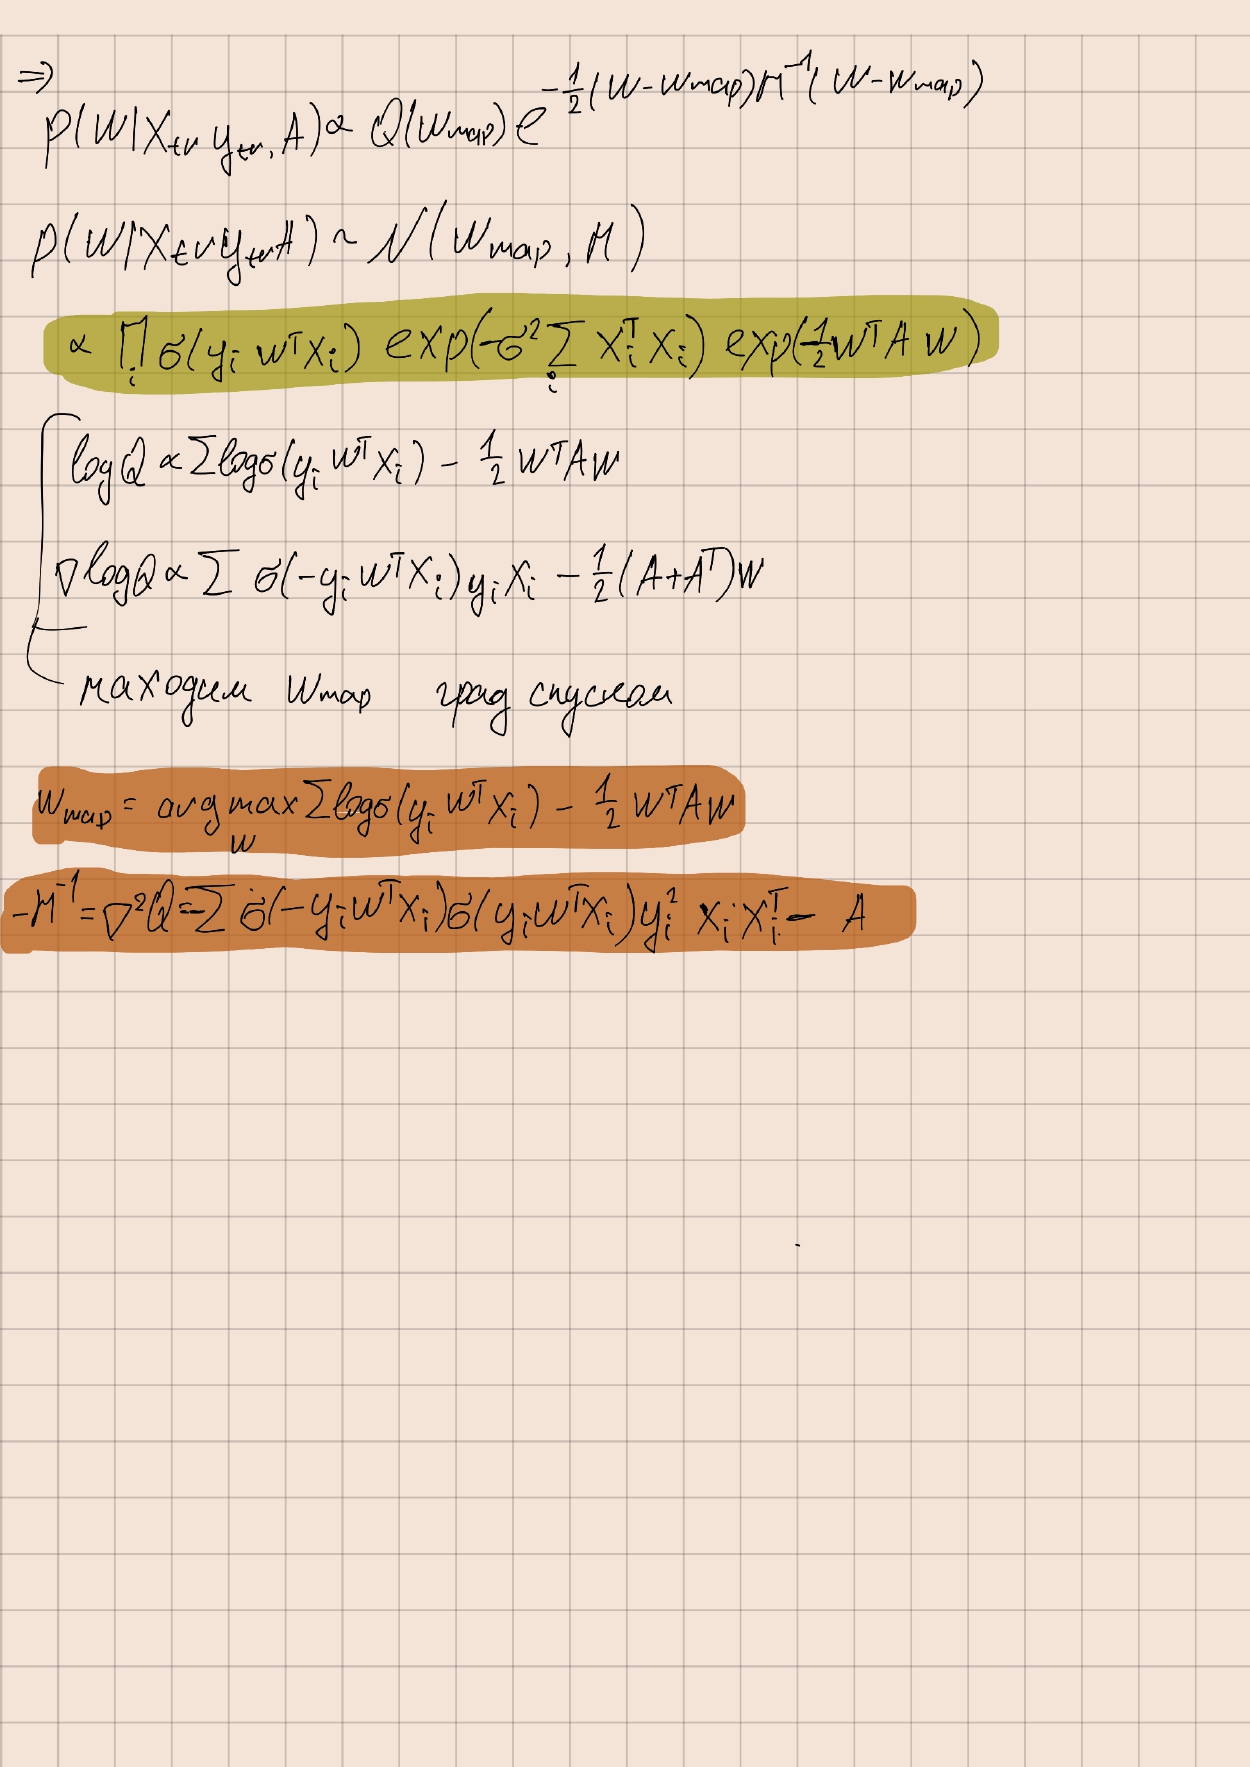 ⇒
p(W|X_tr y_tr, A) ∝ Q(W_map) e^{-1/2 (W - W_map) M^{-1} (W - W_map)}
p(W|X_tr y_tr A) ~ N(W_map, M)
∝ ∏_i σ(y_i w^T x_i) exp(-σ^2 ∑_i x_i^T x_i) exp(-1/2 w^T A w)
log Q ∝ ∑ log σ(y_i w^T x_i) - 1/2 w^T A w
∇ log Q ∝ ∑ σ(-y_i w^T x_i) y_i x_i - 1/2 (A + A^T) w
находим W_map град спуском
W_map = arg max_w ∑ log σ(y_i w^T x_i) - 1/2 w^T A w
-M^{-1} = ∇^2 Q = -∑ σ(-y_i w^T x_i) σ(y_i w^T x_i) y_i^2 x_i x_i^T - A